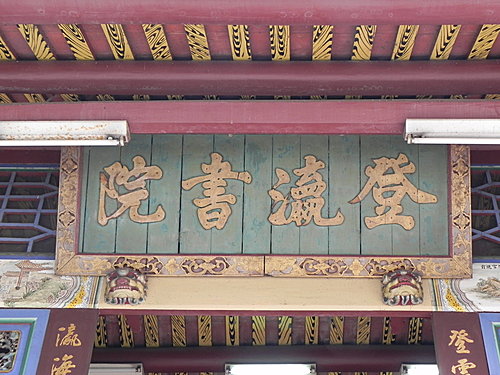 登瀛書院
登雲
瀛海